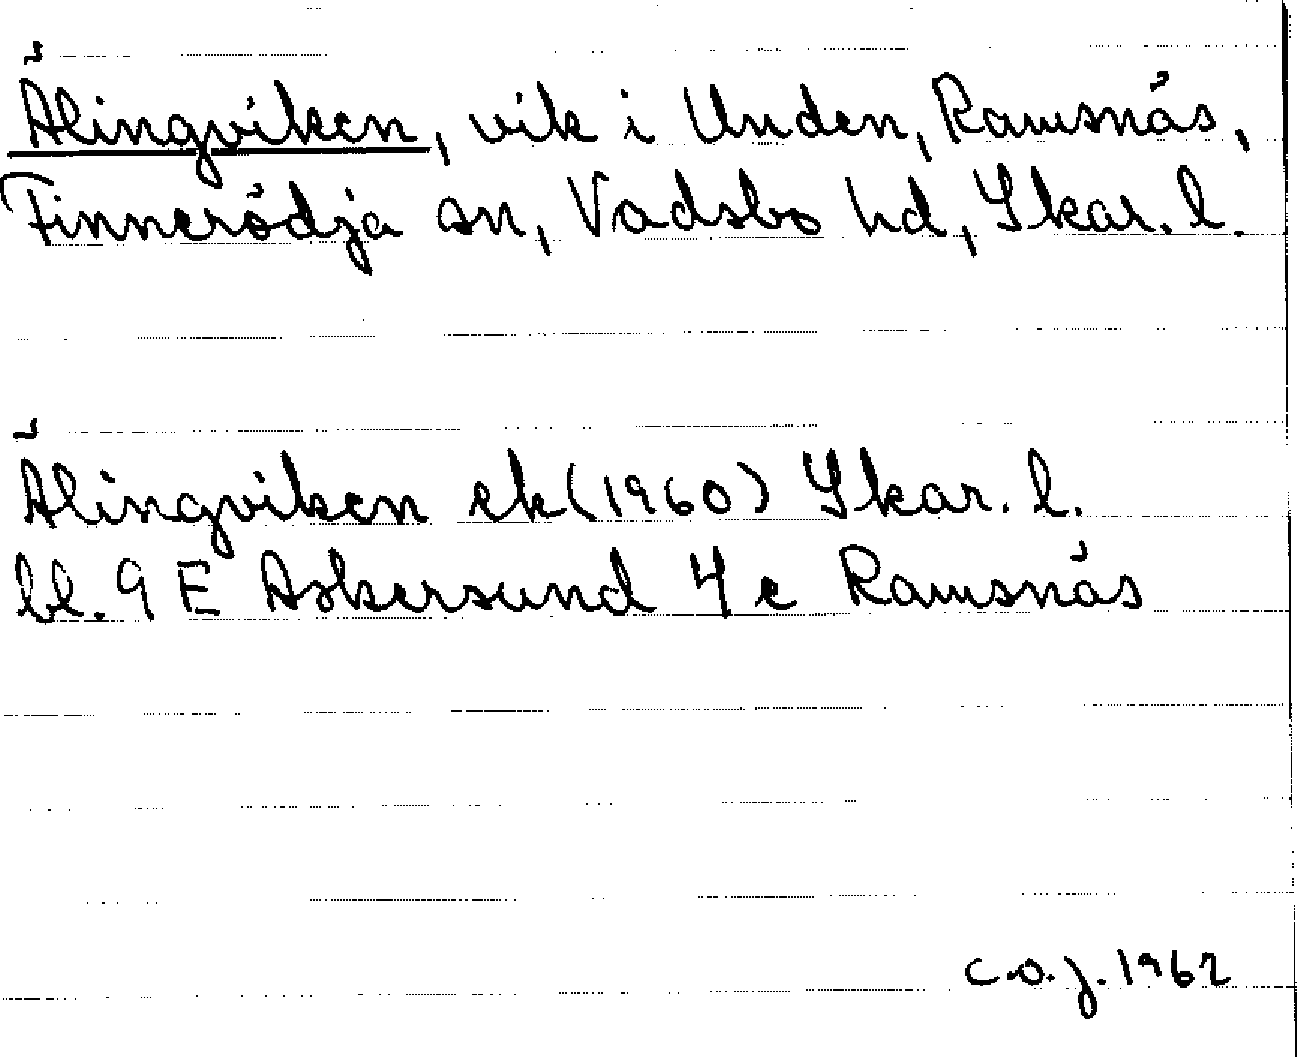 Älingviken, vik i Unden, Ramsnäs,
Finnerödja sn, Vadsbo hd, Skar. l.
Älingviken ek (1960) Skar. l.
bl. 9 E Askersund 4 e Ramsnäs
C.O.J. 1962